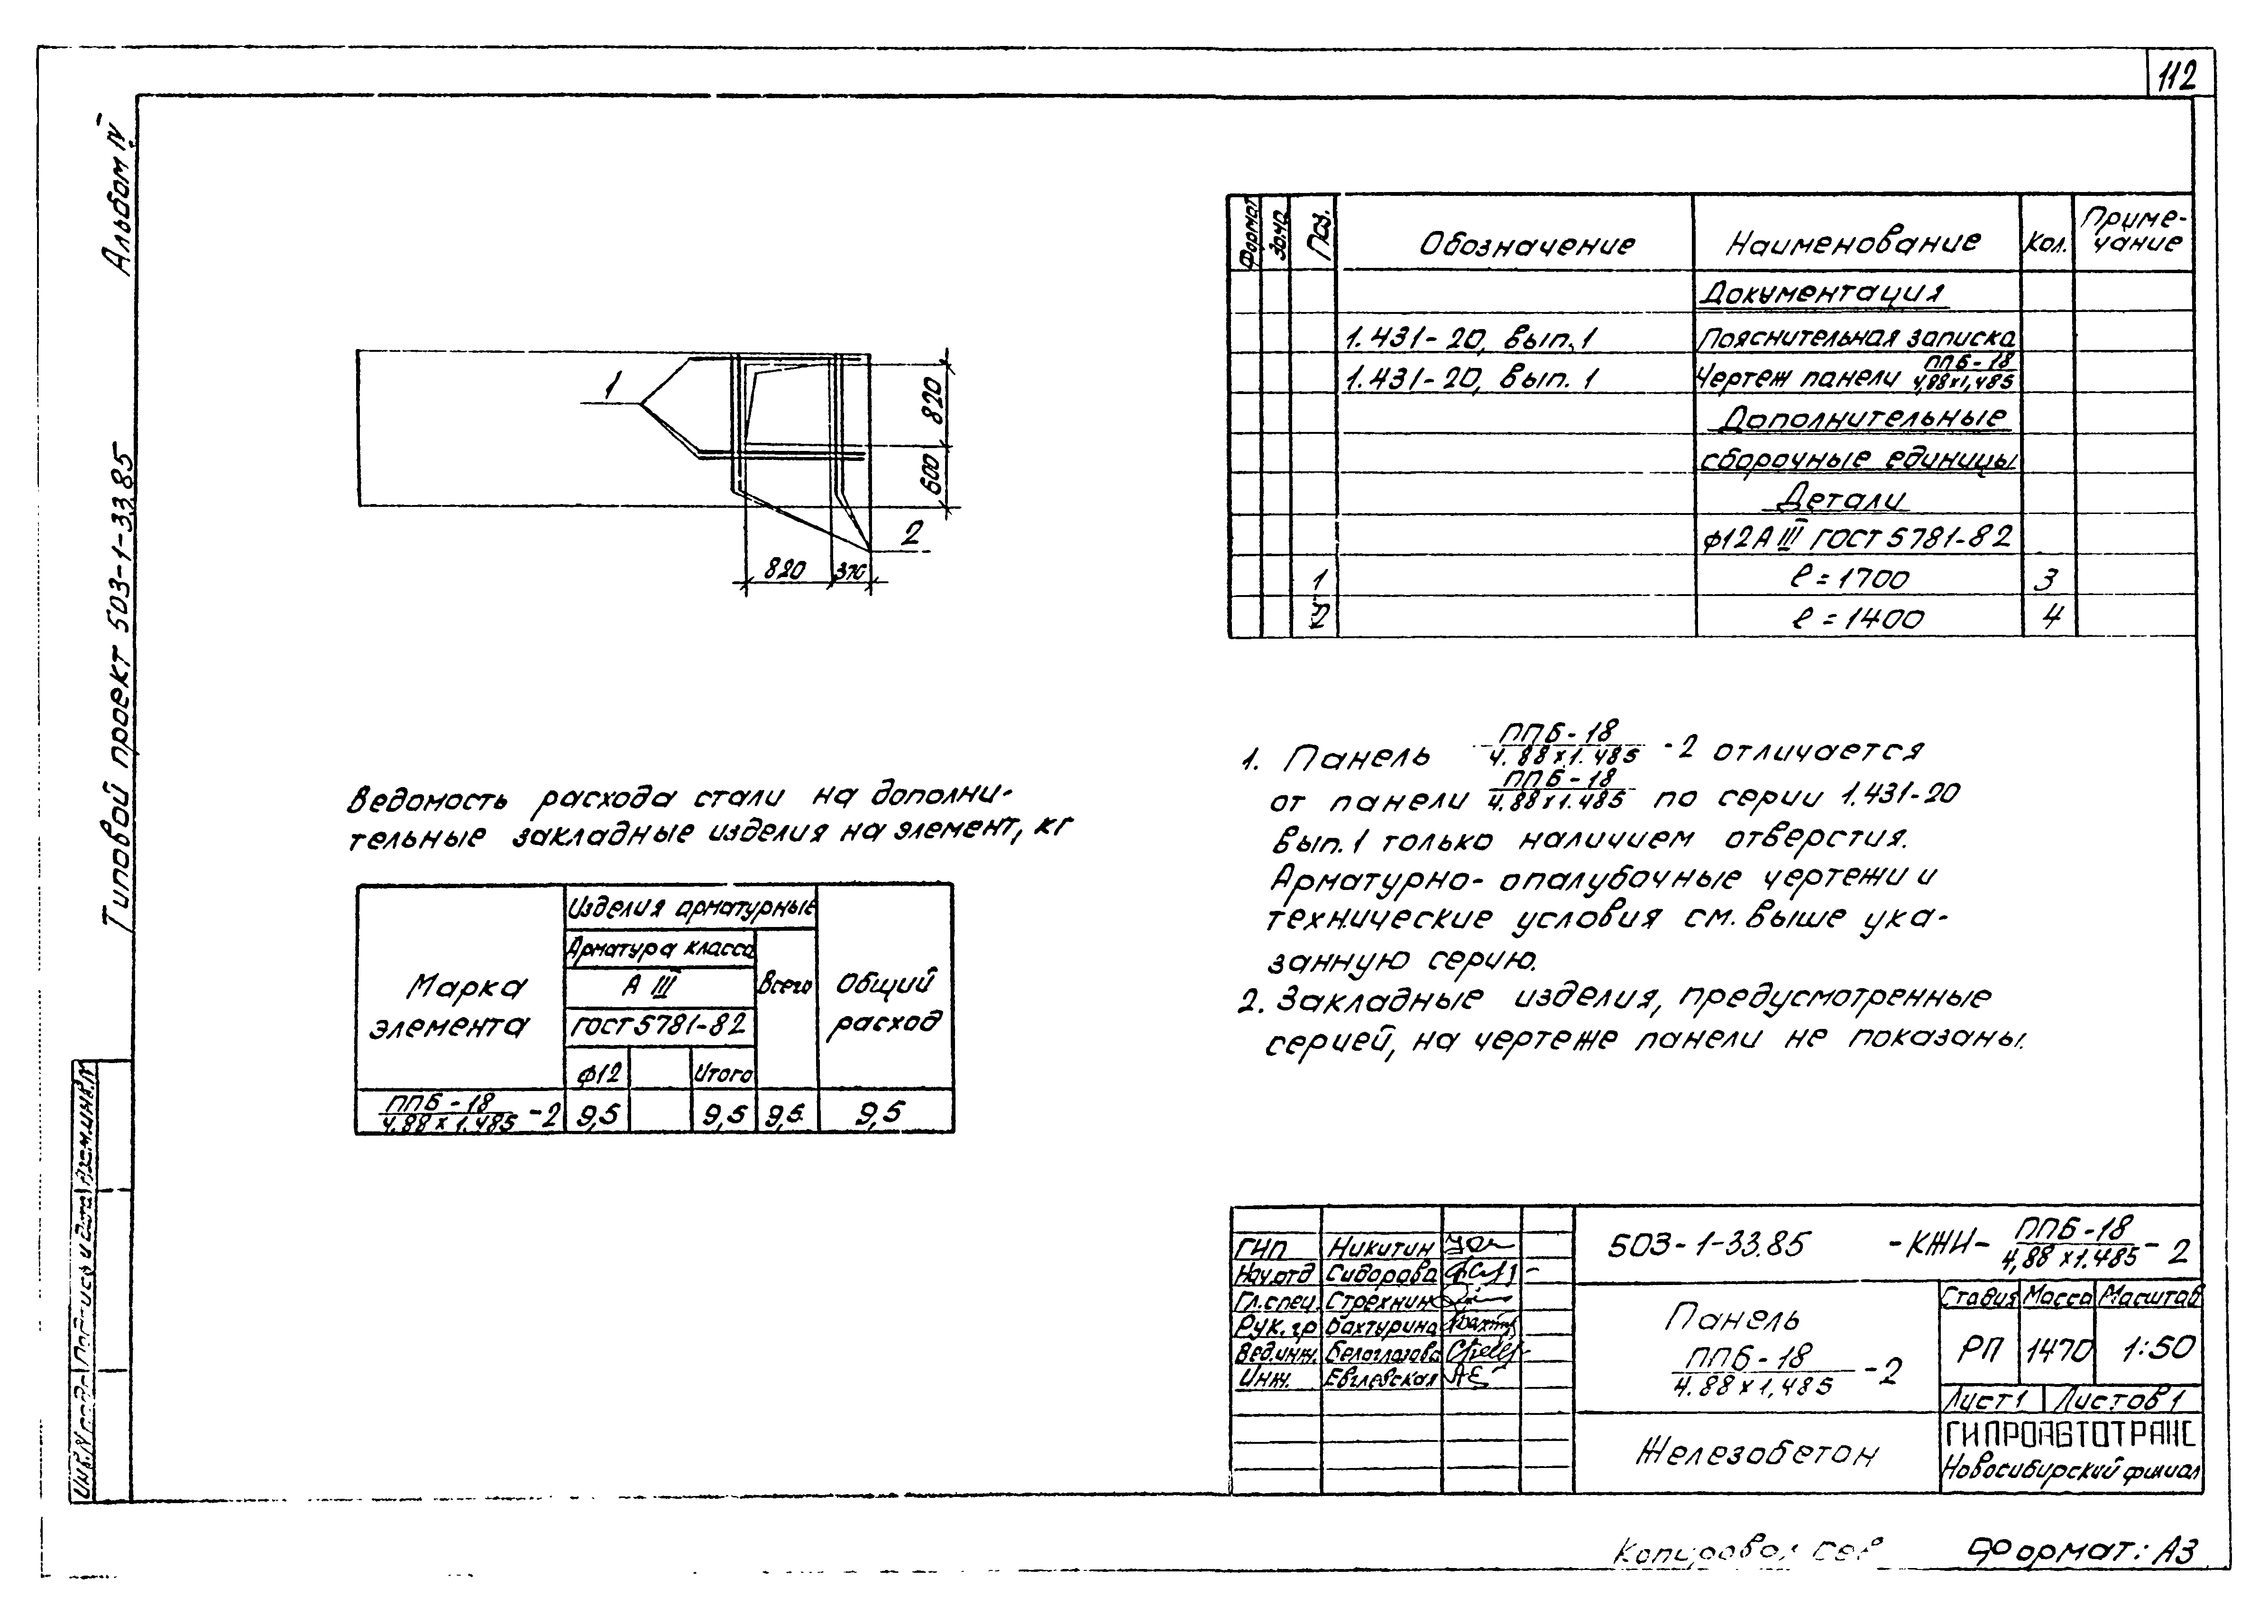 112
Альбом IV
Типовой проект 503-1-33.85
1
2
820
600
820
370
Формат Зона Поз. Обозначение Наименование Кол. Приме-
чание
Документация
1.431-20, вып.1 Пояснительная записка
1.431-20, вып.1 Чертеж панели ППБ-18
4,88х1,485
Дополнительные
сборочные единицы
Детали
ф12АIII ГОСТ 5781-82
1 ℓ=1700 3
2 ℓ=1400 4
Ведомость расхода стали на дополни-
тельные закладные изделия на элемент, кг
Марка
элемента
Изделия арматурные
Арматура класса
А III
ГОСТ 5781-82
ф12 Итого
Всего
Общий
расход
ППБ-18
4.88х1.485 -2 9,5 9,5 9,5 9,5
1. Панель ППБ-18
4.88х1.485 -2 отличается
от панели ППБ-18
4.88х1.485 по серии 1.431-20
вып.1 только наличием отверстия.
Арматурно-опалубочные чертежи и
технические условия см. выше ука-
занную серию.
2. Закладные изделия, предусмотренные
серией, на чертеже панели не показаны.
ГИП Никитин
Нач.отд Сидорова
Гл.спец. Стрехнин
Рук.гр Бахтурина
Вед.инж. Белоглазова
Инж. Евглевская
503-1-33.85 -КЖИ- ППБ-18
4,88х1.485 -2
Панель
ППБ-18
4.88х1,485 -2
Стадия Масса Масштаб
РП 1470 1:50
Лист 1 Листов 1
Железобетон
ГИПРОАВТОТРАНС
Новосибирский филиал
Инв.N подл. Подпись и дата Взам.инв.N
Копировал
Формат: А3